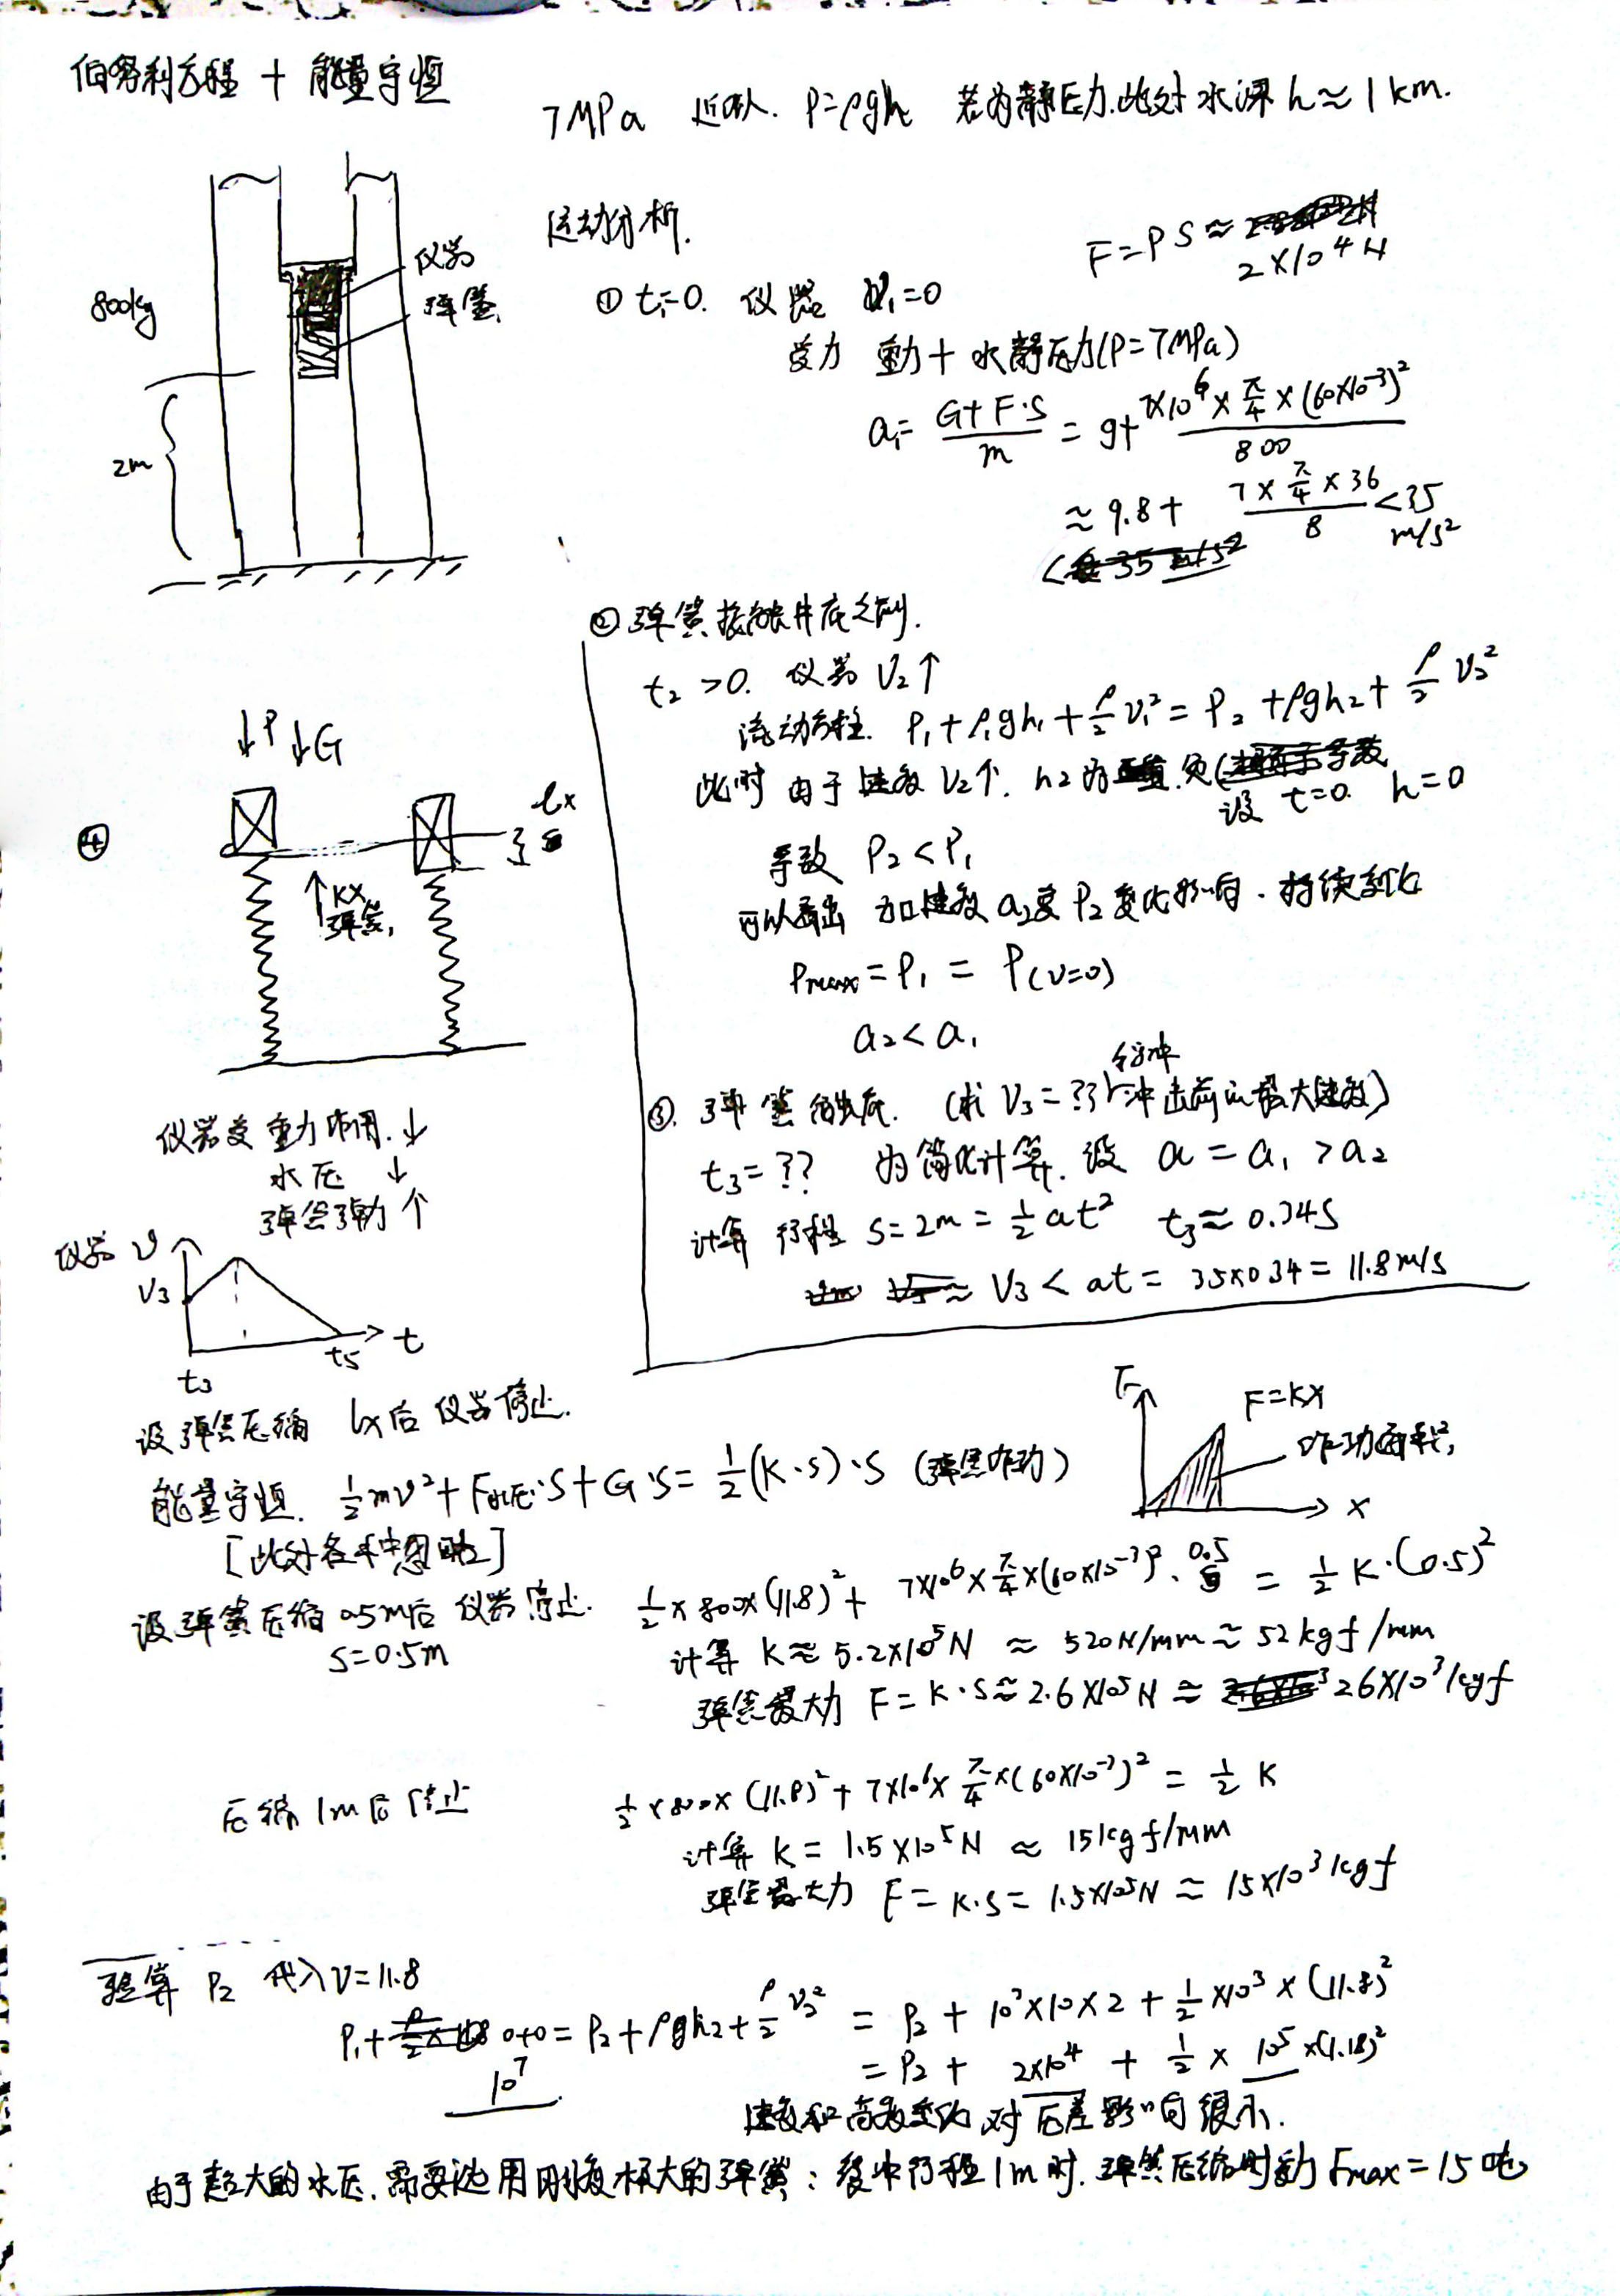 伯努利方程 + 能量守恒
7MPa 近似. P=ρgh 若为静压力.此处水深 h≈1km.
800kg
仪器
弹簧
2m
运动分析.
F=PS≈
2×10⁴N
① t₁=0. 仪器 V₁=0
受力 重力+水静压力(P=7MPa)
a₁= (G+F·S)/m = g+ (7×10⁶×π/4×(60×10⁻³)²)/800
≈9.8+ (7×π/4×36)/8 <35 m/s²
② 弹簧接触井底之前.
t₂>0. 仪器 V₂↑
流动方程. P₁+ρ₁gh₁+ρ/2 V₁² = P₂+ρgh₂+ρ/2 V₂²
此时 由于速度V₂↑. h₂为负(
设 t=0. h=0
导致 P₂<P₁
可以看出 加速度a₂受P₂变化影响.持续变化
Pmax=P₁=P(v=0)
a₂<a₁
③. 弹簧触底. (求V₃=??缓冲冲击前的最大速度)
t₃=?? 为简化计算.设 a=a₁>a₂
计算 行程 S=2m=½at² t₃≈0.34S
V₃<at=35×0.34=11.8m/s
④
↓P ↓G
lx
↑KX
弹簧
仪器受重力作用.↓
水压 ↓
弹簧弹力 ↑
仪器 V
V₃
t₃ t₅ t
设弹簧压缩 lx后 仪器停止.
能量守恒. ½mv²+F水压·S+G·S=½(K·S)·S (弹簧作功)
F
F=KX
作功面积
x
[此处各 忽略]
设弹簧压缩0.5m后 仪器停止.
S=0.5m
½×800×(11.8)²+7×10⁶×π/4×(60×10⁻³)²·0.5=½K·(0.5)²
计算 K≈5.2×10⁵N≈520N/mm≈52kgf/mm
弹簧最大力 F=K·S≈2.6×10⁵N≈26×10³kgf
压缩1m后停止
½×800×(11.8)²+7×10⁶×π/4×(60×10⁻³)²=½K
计算 K=1.5×10⁵N≈15kgf/mm
弹簧最大力 F=K·S=1.5×10⁵N≈15×10³kgf
验算 P₂ 代入V=11.8
P₁+0+0=P₂+ρgh₂+ρ/2 V₂² =P₂+10³×10×2+½×10³×(11.8)²
10⁷
=P₂+2×10⁴+½×10⁵×(1.18)²
速度和高度变化对压差影响很小.
由于超大的水压.需要选用刚度极大的弹簧:缓冲行程1m时.弹簧压缩时力Fmax=15吨